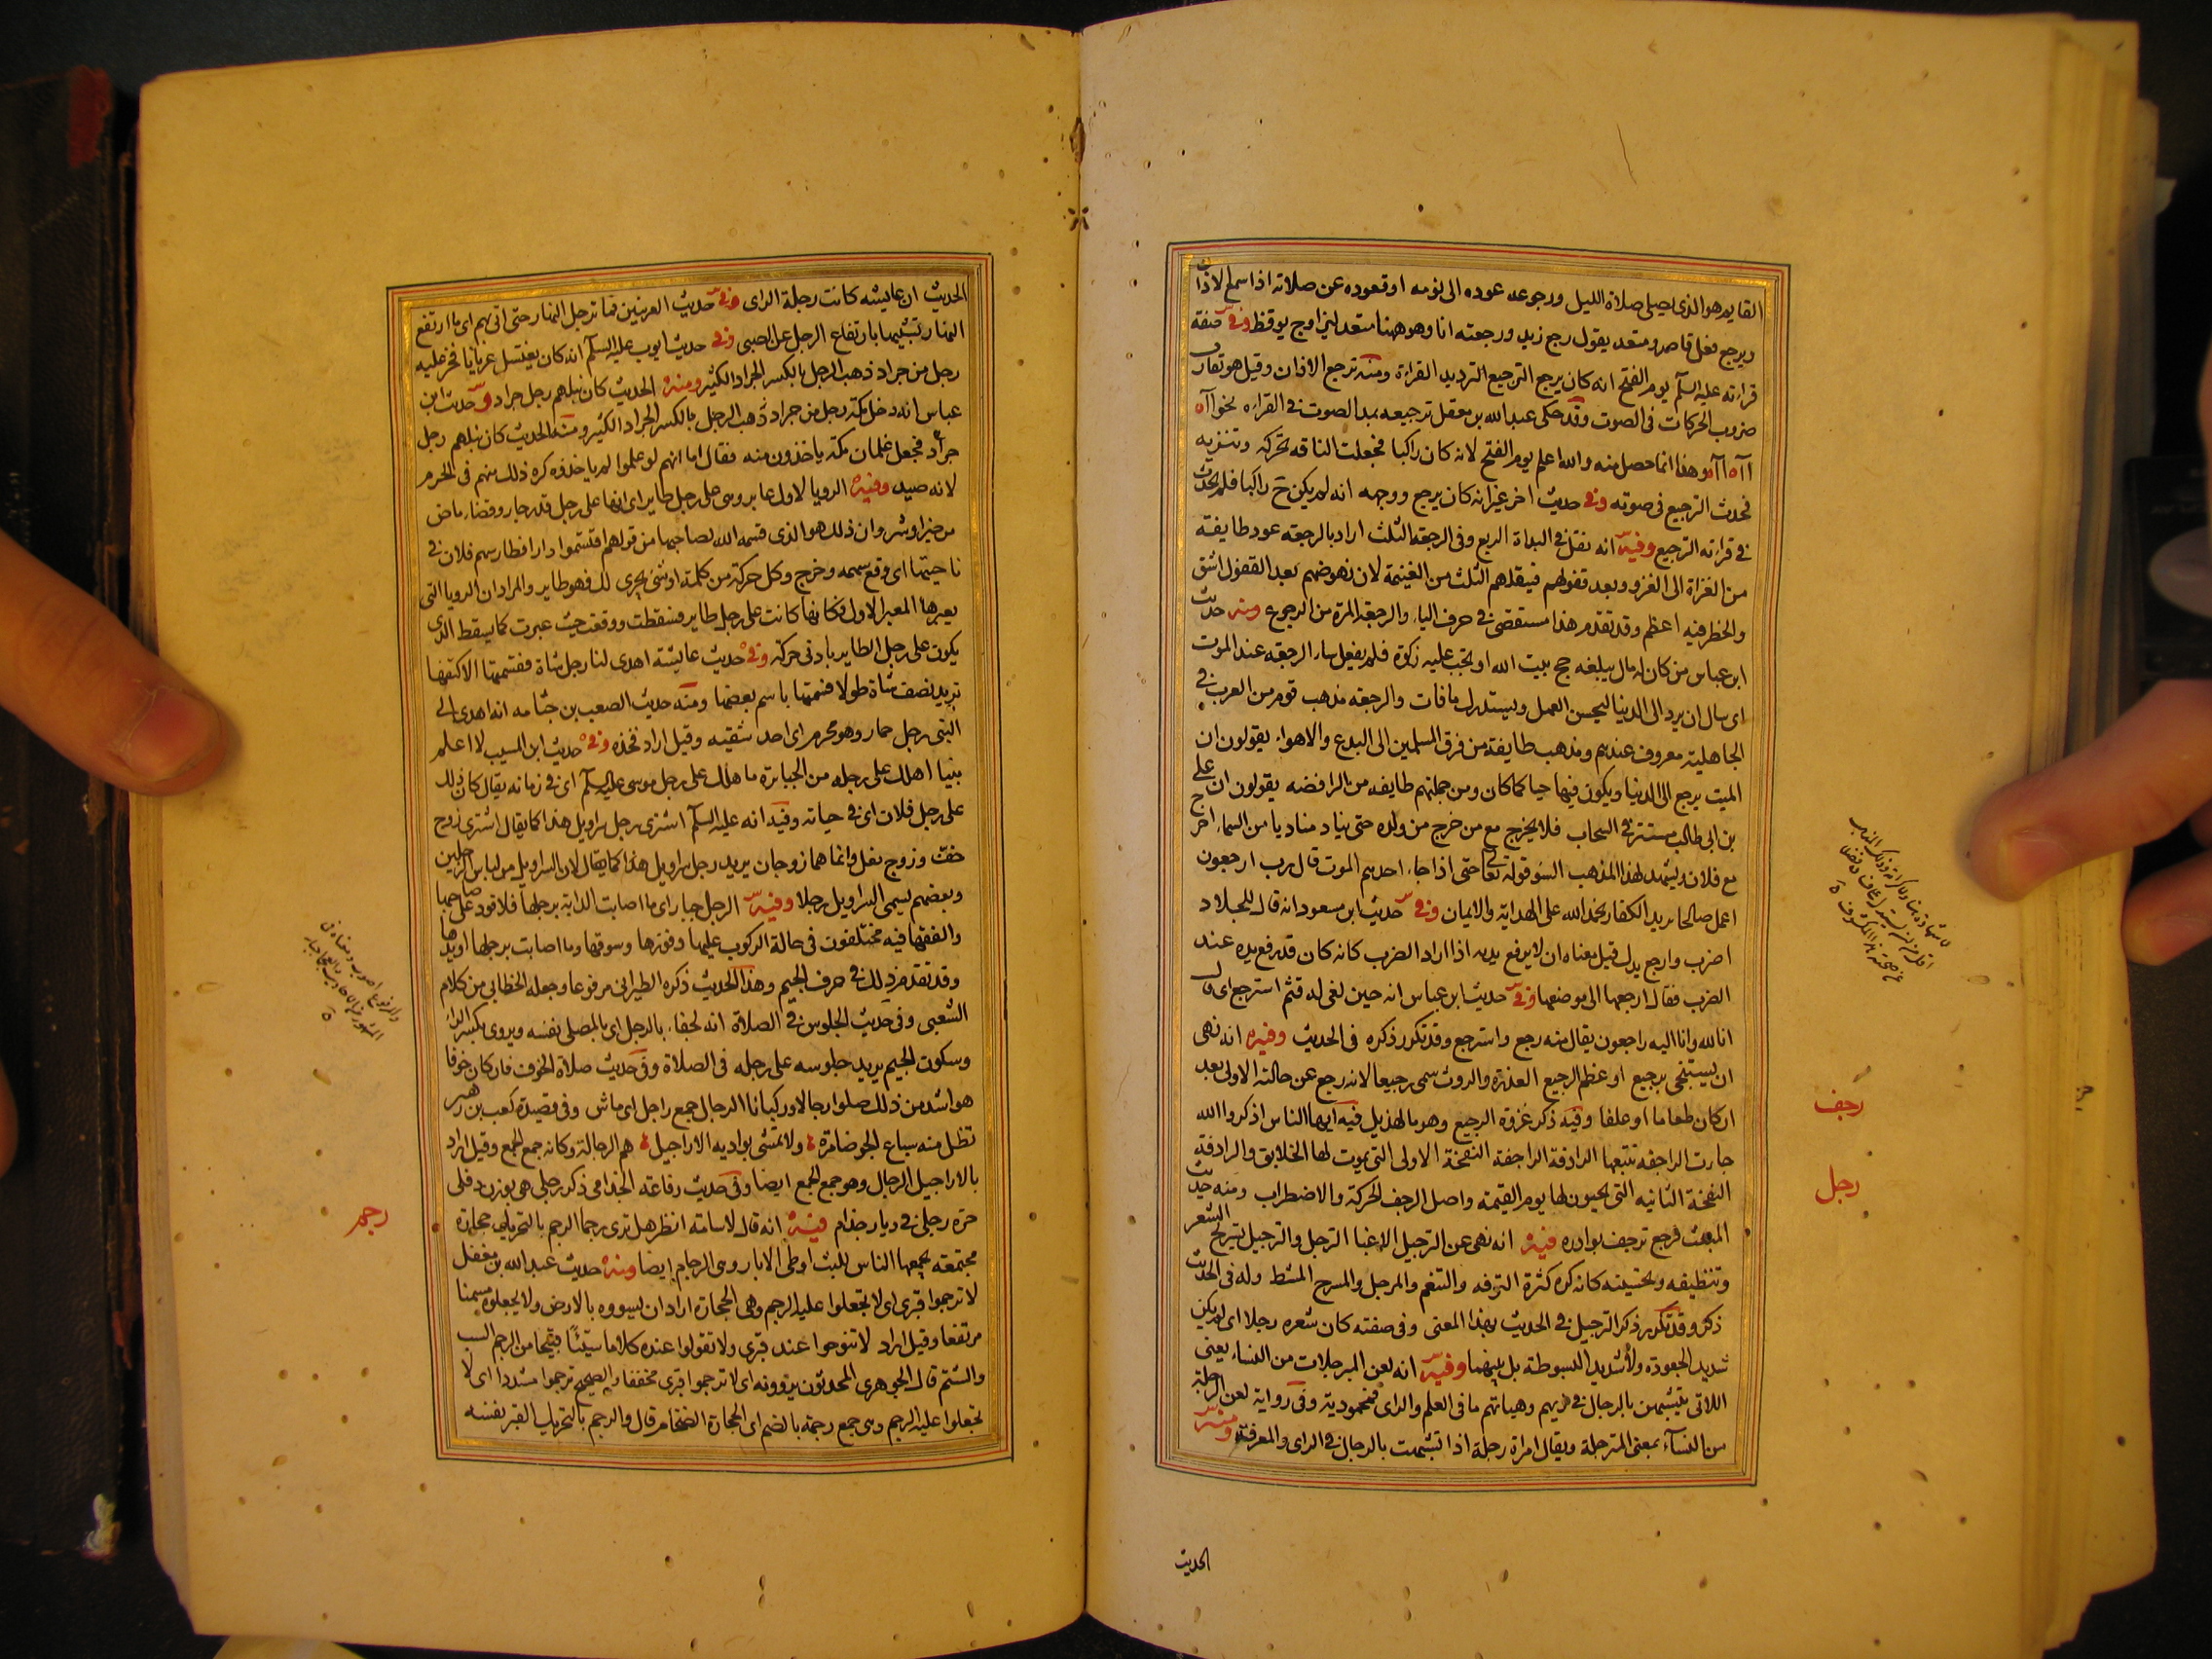 القايم هو الذى يصلى صلاة الليل ورجوعه عوده الى نومه او قعوده عن صلاته اذا سمع الاذان
ويرجع فعل قاصر ومتعد يقول رجع زيد ورجعته انا وهو ههنا متعد ليزاوج يوقظ وفى صفة
قراءته عليه السلم يوم الفتح انه كان يرجع الترجيع الترديد القراءة ومنه ترجيع الاذان وقيل هو تقارب
ضروب الحركات فى الصوت وقد حكى عبد الله بن مغفل ترجيعه بمد الصوت فى القراءه نحو اآه
اآه اآه وهذا انما حصل منه والله اعلم يوم الفتح لانه كان راكبا فجعلت الناقه تحركه وتنزيه
فحدث الترجيع فى صوته وفى حديث اخر غير انه كان يرجع ووجهه انه لم يكن ح راكبا فلم يحدث
فى قراءته الترجيع وفيه انه نفل فى البداة الربع وفى الرجعة الثلث اراد بالرجعة عود طايفة
من الغزاة الى الغزو وبعد قفولهم فينفلهم الثلث من الغنيمة لان نهوضهم بعد القفول اشق
والخطر فيه اعظم وقد تقدم هذا مستقصى فى حرف الباء والرجعة المرة من الرجوع ومنه حديث
ابن عباس من كان له مال يبلغه حج بيت الله او تجب عليه زكوة فلم يفعل سال الرجعه عند الموت
اى سال ان يرد الى الدنيا ليحسن العمل ويستدرك ما فات والرجعه مذهب قوم من العرب فى
الجاهلية معروف عندهم ومذهب طايفة من فرق المسلمين الى البدع والاهواء يقولون ان
الميت يرجع الى الدنيا ويكون فيها حيا كما كان ومن جملتهم طايفه من الرافضه يقولون ان على
بن ابى طالب مستتر فى السحاب فلا يخرج مع من خرج من ولده حتى يناد مناديا من السماء اخرج
مع فلان ويشهد لهذا المذهب السوء قوله تعالى حتى اذا جاء احدهم الموت قال رب ارجعون
اعمل صالحا يريد الكفار بحمد الله على الهداية والايمان وفى حديث ابن مسعود انه قال للجلاد
اضرب وارجع يدك قيل معناه ان لا يرفع يديه اذا اراد الضرب كانه كان قد رفع يده عند
الضرب فقال ارجعها الى موضعها وفى حديث ابن عباس انه حين نعى له قثم استرجع اى قال
انا لله وانا اليه راجعون يقال منه رجع واسترجع وقد تكرر ذكره فى الحديث وفيه انه نهى
ان يستنجى برجيع او عظم الرجيع العذرة والروث سمى رجيعا لانه رجع عن حالته الاولى بعد
ان كان طعاما او علفا وفيه ذكر غزوة الرجيع وهو ما لهذيل فيه ايها الناس اذكروا الله
جاءت الراجفه تتبعها الرادفة الراجفة النفخة الاولى التى يموت لها الخلايق والرادفة
النفخة الثانيه التى يحيون لها يوم القيمة واصل الرجف الحركة والاضطراب ومنه حديث
المبعث فرجع ترجف بوادره فيه انه نهى عن الترجيل الا غبا الترجل والترجيل تسريح الشعر
وتنظيفه وتحسينه كانه كره كثرة الترفه والتنعم والمرجل والمسرح المشط وله فى الحديث
ذكر وقد تكرر ذكر الترجيل فى الحديث بهذا المعنى وفى صفته كان شعره رجلا اى لم يكن
شديد الجعودة ولا شديد السبوطة بل بينهما وفيه انه لعن المترجلات من النساء يعنى
اللاتى يتشبهن بالرجال فى زيهم وهياتهم فاما فى العلم والراى فمحمودية وفى رواية لعن الرجلة
من النسآء بمعنى المترجلة ويقال امراة رجلة اذا تشبهت بالرجال فى الراى والمعرفة ومنه
رجف
رجل
الحديث
الحديث ان عايشه كانت رجلة الراى وفى حديث العرنيين فما ترجل النهار حتى اتى بهم اى ما ارتفع
النهار تشبيها بارتفاع الرجل عن الصبى وفى حديث ايوب عليه السلم انه كان يغتسل عريانا فخر عليه
رجل من جراد ذهب الرجل بالكسر الجراد الكثير ومنه الحديث كان نبلهم رجل جراد وحديث ابن
عباس انه دخل مكة رجل من جراد ذهب الرجل بالكسر الجراد الكثير ومنه الحديث كان نبلهم رجل
جراد فجعل غلمان مكة ياخذون منه فقال اما انهم لو علموا لم ياخذوه كره ذلك منهم فى الحرم
لانه صيد وفيه الرويا لاول عابر وهى على رجل طاير اى انها على رجل قدر جار وقضاء ماض
من خير او شر وان ذلك هو الذى قسمه الله لصاحبها من قولهم اقتسموا دارا فطار سهم فلان فى
ناحيتها اى وقع سهمه وخرج وكل حركة من كلمة او شئ يجرى لك فهو طاير والمراد ان الرويا التى
يعبرها المعبر الاول فكانها كانت على رجل طاير فسقطت ووقعت حيث عبرت كما يسقط الذى
يكون على رجل الطاير بادنى حركة وفى حديث عايشة اهدى لنا رجل شاة فقسمتها الا كتفها
تريد نصف شاة طولا فسمتها باسم بعضها ومنه حديث الصعب بن جثامه انه اهدى الى
النبى رجل حمار وهو محرم اى احد شقيه وقيل اراد فخذه وفى حديث ابن المسيب لا اعلم
نبيا اهلك على رجله من الجبابرة ما هلك على رجل موسى عليه السلم اى فى زمانه يقال كان ذلك
على رجل فلان اى فى حياته وفيه انه عليه السلم اشترى رجل سراويل هذا كما يقال اشترى زوج
خف وزوج نعل وانما هما زوجان يريد رجل سراويل هذا كما يقال لان السراويل من لباس الرجلين
وبعضهم يسمى السراويل رجلا وفيه الرجل جبار اى ما اصابت الدابة برجلها فلا قود على صاحبها
والفقها فيه مختلفون فى حالة الركوب عليها وقودها وسوقها وما اصابت برجلها او يدها
وقد تقدم ذلك فى حرف الجيم وهذا الحديث ذكره الطبرانى مرفوعا وجعله الخطابى من كلام
الشعبى وفى حديث الجلوس فى الصلاة انه لجفاء بالرجل اى بالمصلى نفسه ويروى بكسر الراء
وسكون الجيم يريد جلوسه على رجله فى الصلاة وفى حديث صلاة الخوف فان كان خوفا
هو اشد من ذلك صلوا رجالا وركبانا الرجال جمع راجل اى ماش وفى قصيدة كعب بن زهير
تظل منه سباع الجو ضامزة ولا تمشى بواديه الاراجيل هم الرجالة وكانه جمع الجمع وقيل اراد
بالاراجيل الرجال وهو جمع الجمع ايضا وفى حديث رفاعة الجذامى ذكر رجلى هى بوزن دفلى
حرة رجلى فى ديار جذام فيه انه قال لاسامة انظر هل ترى رجما الرجم بالتحريك حجارة
مجتمعة يجمعها الناس للبناء او طى الابار وهى الرجام ايضا ومنه حديث عبد الله بن مغفل
لا ترجموا قبرى اى لا تجعلوا عليه الرجم وهى الحجارة اراد ان يسووه بالارض ولا يجعلوه مسنما
مرتفعا وقيل اراد لا تنوحوا عند قبرى ولا تقولوا عنده كلاما سيئا قبيحا من الرجم السب
والشتم قال الجوهرى المحدثون يروونه اى لا ترجموا قبرى مخففا والصحيح ترجموا مشددا اى لا
تجعلوا عليه الرجم وهى جمع رجمة بالضم اى الحجارة الضخام قال والرجم بالتحريك القبر نفسه
رجم